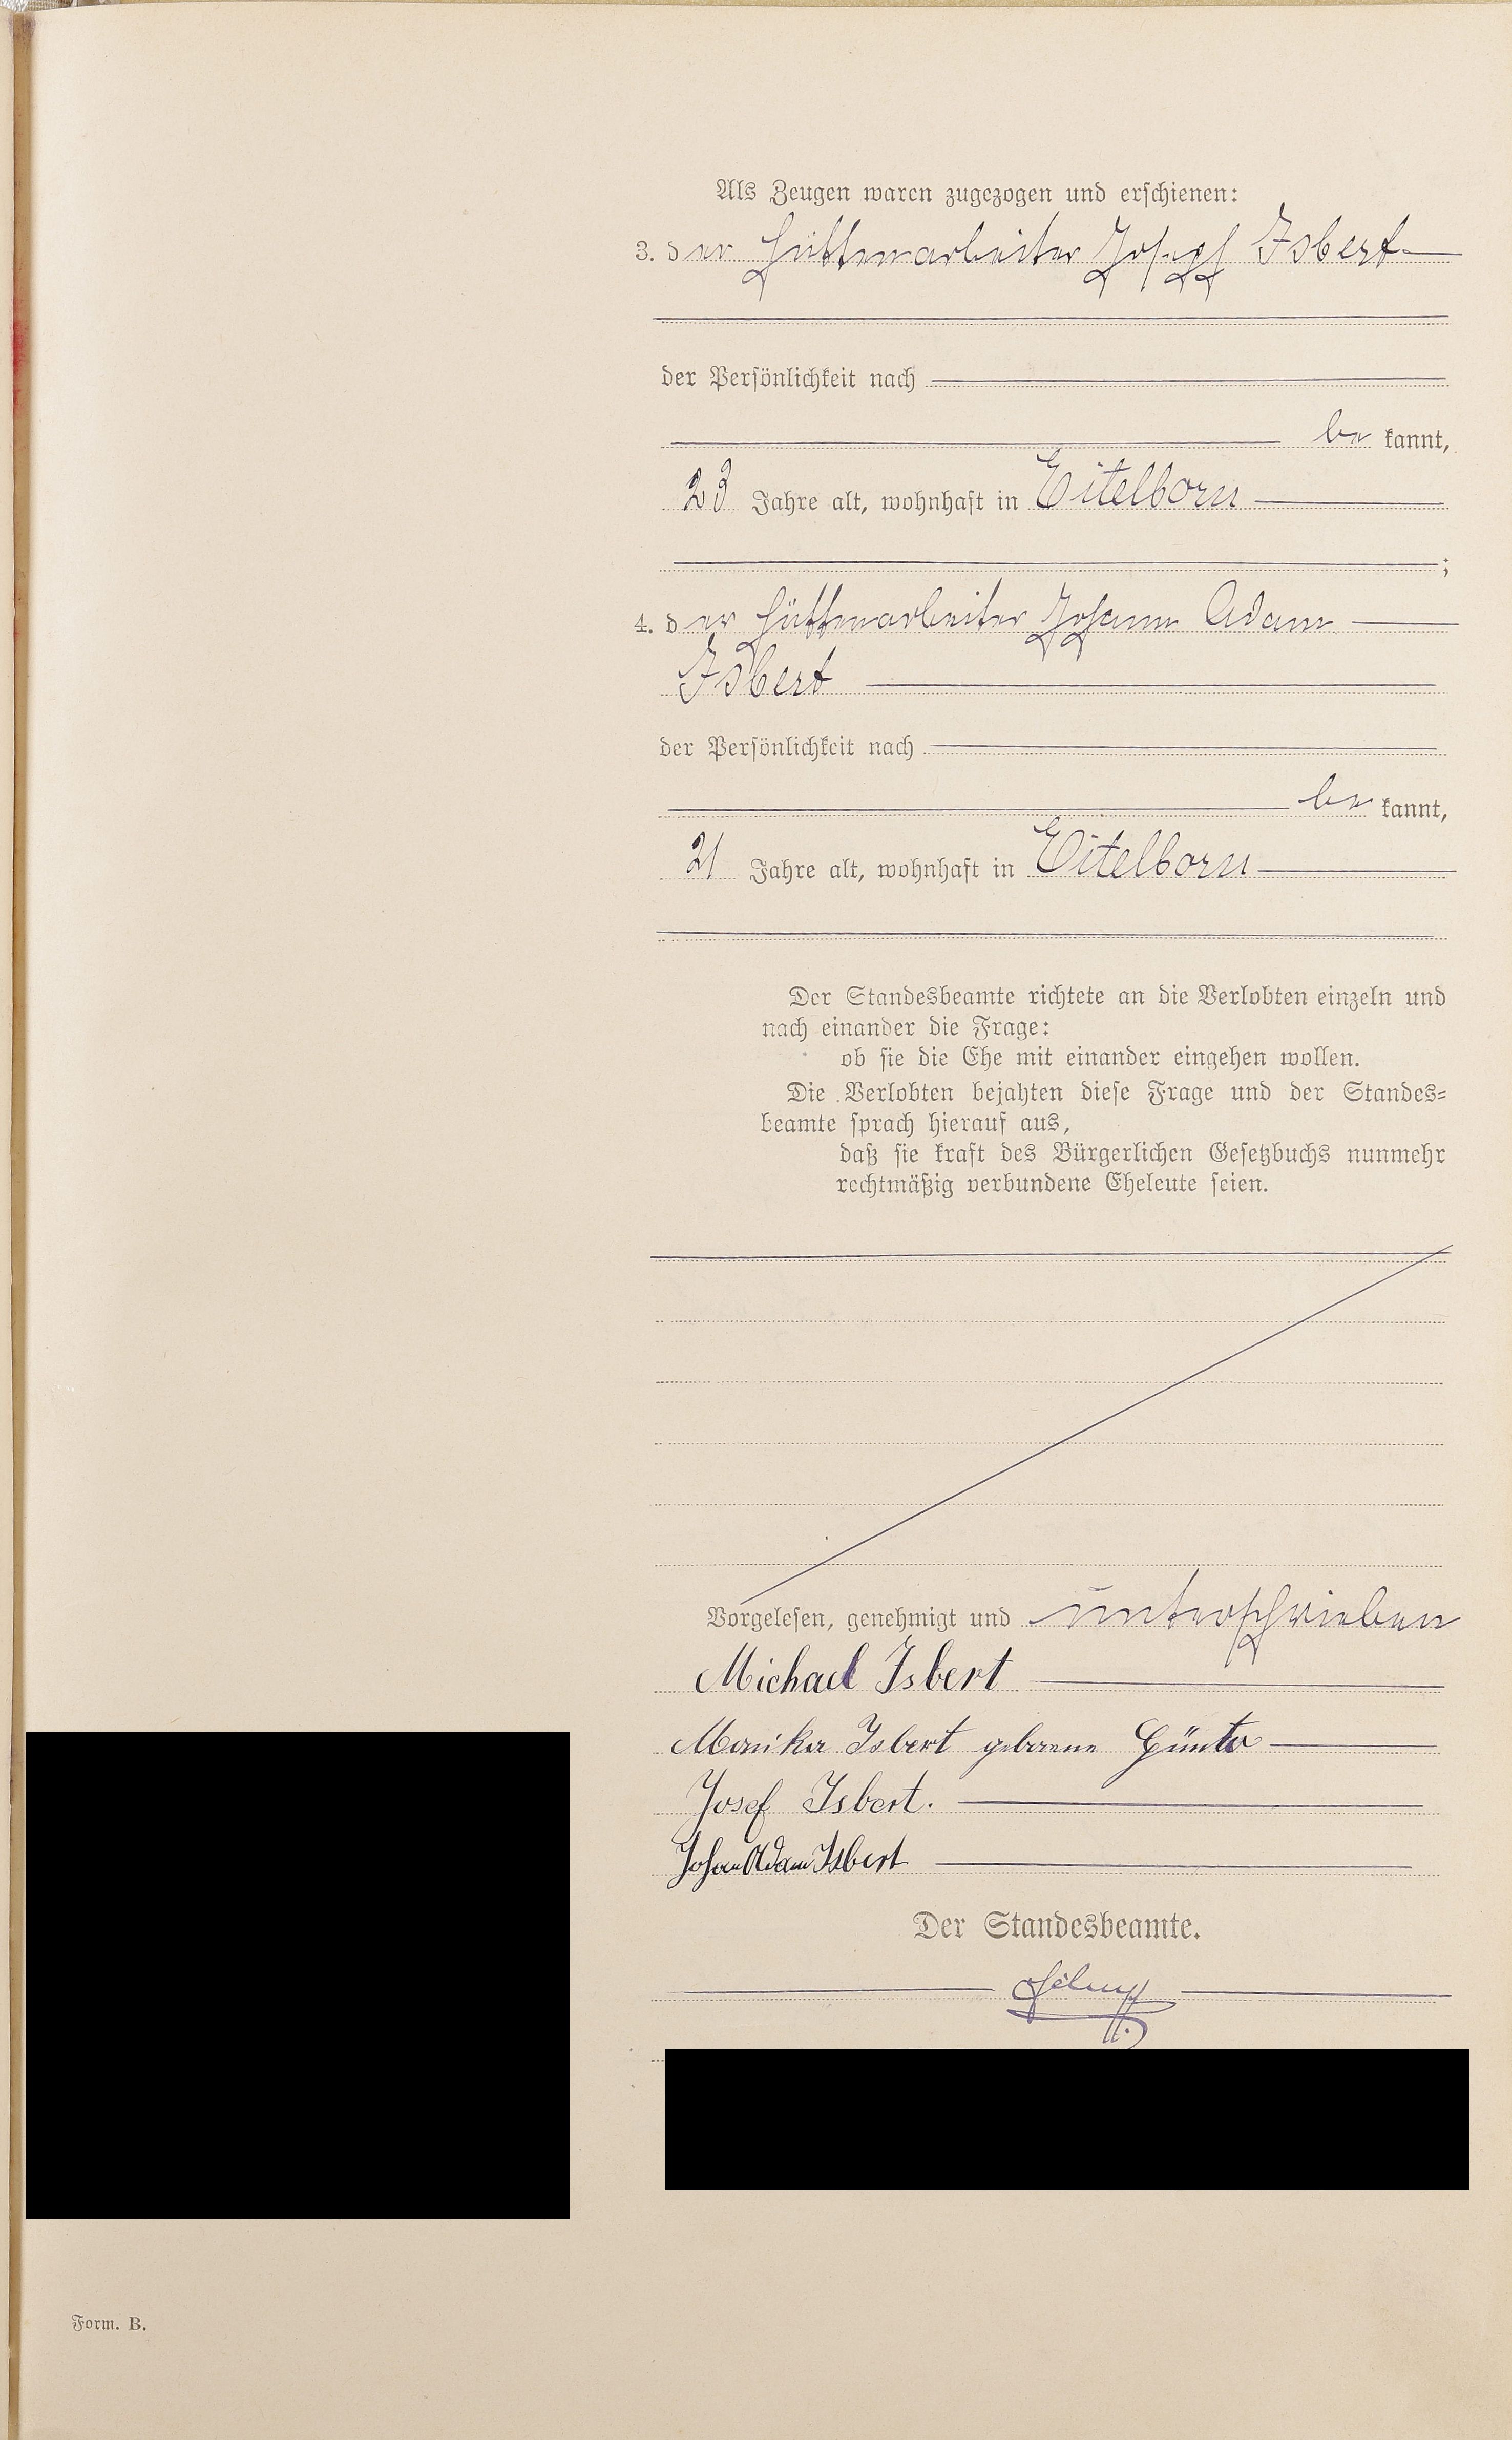 Als Zeugen waren zugezogen und erschienen:
3. der Hüttenarbeiter Joseph Isbert
der Persönlichkeit nach
be kannt,
23 Jahre alt, wohnhaft in Eitelborn
;
4. der Hüttenarbeiter Johann Adam
Isbert
der Persönlichkeit nach
be kannt,
21 Jahre alt, wohnhaft in Eitelborn
Der Standesbeamte richtete an die Verlobten einzeln und
nach einander die Frage:
ob sie die Ehe mit einander eingehen wollen.
Die Verlobten bejahten diese Frage und der Standes=
beamte sprach hierauf aus,
daß sie kraft des Bürgerlichen Gesetzbuchs nunmehr
rechtmäßig verbundene Eheleute seien.
Vorgelesen, genehmigt und unterschrieben
Michael Isbert
Monika Isbert geborene
Josef Isbert.
Johan Adam Isbert
Der Standesbeamte.
Form. B.